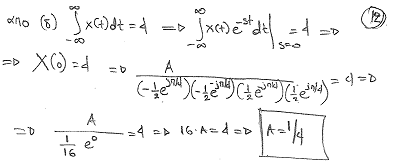 12
από (δ) ∫_{-∞}^{∞} x(t)dt = 4 ⇒ ∫_{-∞}^{∞} x(t)e^{-st}dt|_{s=0} = 4 ⇒
⇒ X(0)=4 ⇒ A / ((-1/2 e^{jπ/4})(-1/2 e^{-jπ/4})(1/2 e^{jπ/4})(1/2 e^{-jπ/4})) = 4 ⇒
⇒ A / (1/16 e^0) = 4 ⇒ 16·A = 4 ⇒ A = 1/4